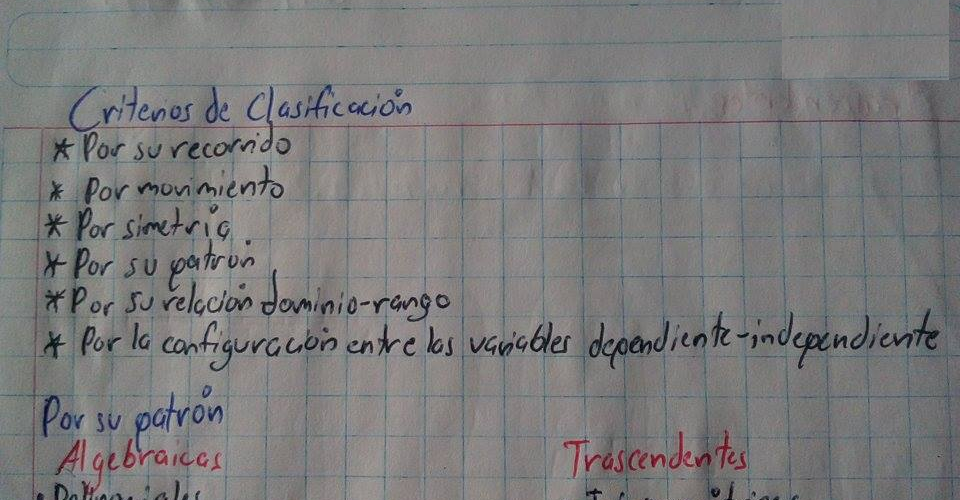 Criterios de Clasificación
* Por su recorrido
* Por movimiento
* Por simetría
* Por su patrón
* Por su relación dominio-rango
* Por la configuración entre las variables dependiente-independiente
Por su patrón
Algebraicas Trascendentes